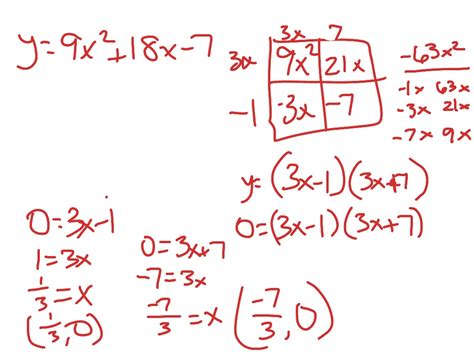 y=9x²+18x-7
3x 7
3x 9x² 21x
-1 -3x -7
-63x²
-1x 63x
-3x 21x
-7x 9x
y=(3x-1)(3x+7)
0=(3x-1)(3x+7)
0=3x-1
1=3x
1/3=x
(1/3,0)
0=3x+7
-7=3x
-7/3=x (-7/3,0)